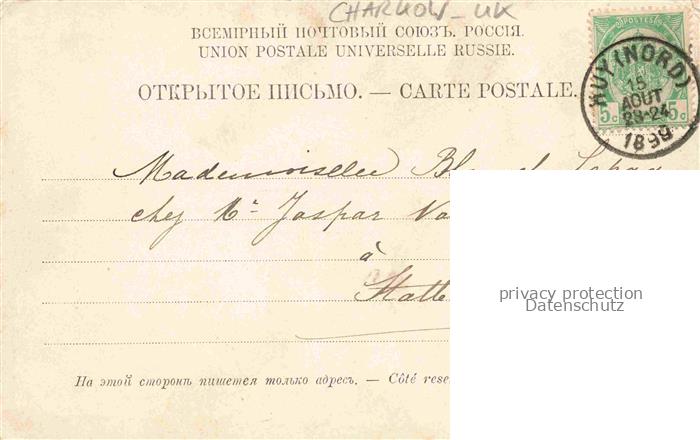 CHARKOW - UK
ВСЕМІРНЫЙ ПОЧТОВЫЙ СОЮЗЪ. РОССІЯ.
UNION POSTALE UNIVERSELLE RUSSIE.
ОТКРЫТОЕ ПИСЬМО. — CARTE POSTALE.
POSTES
5c 5c
HUY (NORD)
15
AOUT
23-24
1899
Mademoiselle
chez Mr Jaspar
à
privacy protection
Datenschutz
На этой сторонѣ пишется только адресъ. — Côté rese